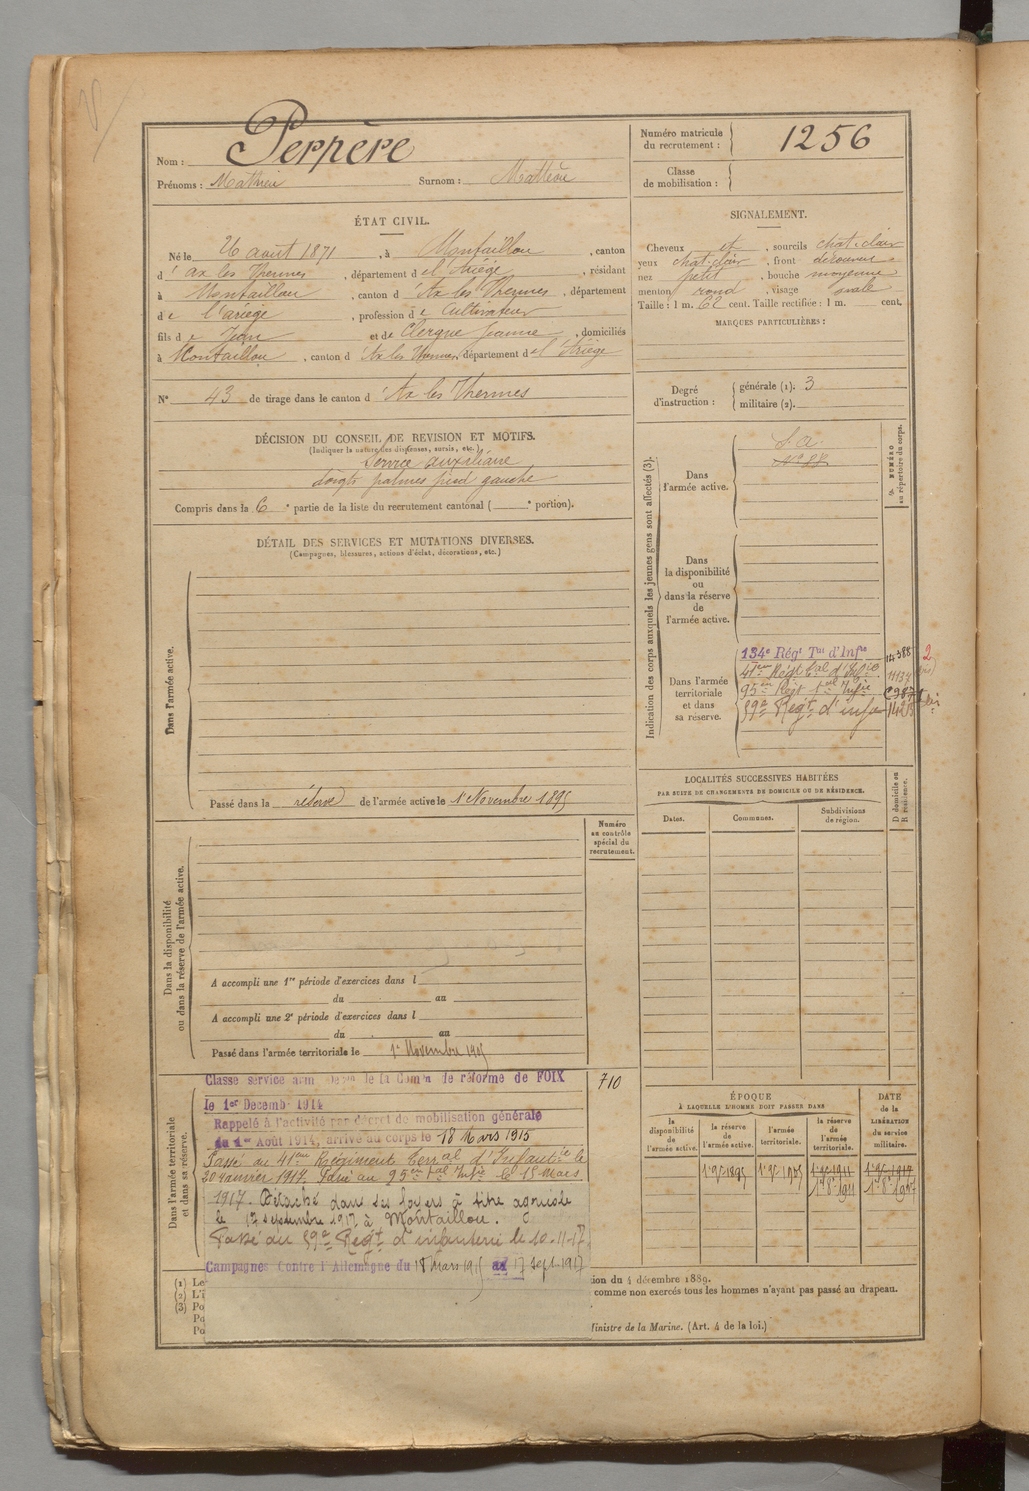 Nom : Perpère
Prénoms : Mathieu Surnom : Mathieu
Numéro matricule du recrutement : 1256
Classe de mobilisation :
ÉTAT CIVIL.
Né le 26 août 1871, à Montaillou, canton
d'ax les Thermes, département de l'Ariège, résidant
à Montaillou, canton d'Ax les Thermes, département
de l'ariège, profession de Cultivateur
fils de Jean et de Clergue Jeanne, domiciliés
à Montaillou, canton d'Ax les Thermes, département de l'Ariège
N° 43 de tirage dans le canton d'Ax les Thermes
SIGNALEMENT.
Cheveux et, sourcils chat. clair
yeux chat. clair, front découvert
nez petit, bouche moyenne
menton rond, visage ovale
Taille : 1 m. 62 cent. Taille rectifiée : 1 m. cent.
MARQUES PARTICULIÈRES :
Degré d'instruction : générale (1). 3
militaire (2).
DÉCISION DU CONSEIL DE REVISION ET MOTIFS.
(Indiquer la nature des dispenses, sursis, etc.)
Service auxiliaire
doigts palmés pied gauche
Compris dans la 6e partie de la liste du recrutement cantonal ( e portion).
DÉTAIL DES SERVICES ET MUTATIONS DIVERSES.
(Campagnes, blessures, actions d'éclat, décorations, etc.)
Dans l'armée active.
Passé dans la réserve de l'armée active le 1er Novembre 1895
Indication des corps auxquels les jeunes gens sont affectés (3).
NUMÉRO au répertoire du corps.
Dans l'armée active.
S. a.
N° 88
Dans la disponibilité ou dans la réserve de l'armée active.
Dans l'armée territoriale et dans sa réserve.
134e Régt Tal d'Infie 14388 2
41eme Régt tal d'Infie
95e Régt tal Infie
59e Regt d'infie
LOCALITÉS SUCCESSIVES HABITÉES
PAR SUITE DE CHANGEMENTS DE DOMICILE OU DE RÉSIDENCE.
Dates. Communes. Subdivisions de région. D domicile ou R résidence.
Numéro au contrôle spécial du recrutement.
Dans la disponibilité ou dans la réserve de l'armée active.
A accompli une 1re période d'exercices dans l
du au
A accompli une 2e période d'exercices dans l
du au
Passé dans l'armée territoriale le 1er Novembre 1905
710
Dans l'armée territoriale et dans sa réserve.
Classe service armé la Comon de réforme de FOIX
le 1er Decembre 1914
Rappelé à l'activité par décret de mobilisation générale
du 1er Août 1914, arrivé au corps le 18 Mars 1915
Passé au 41eme Régiment terral d'Infantie le
20 Janvier 1917. Passé au 95e tal Infie le 15 Mars
1917. Détaché dans ses foyers à titre agricole
le 17 septembre 1917 à Montaillou.
Passé au 59e Regt d'infanterie le 10-11-17
Campagnes contre l'Allemagne du 18 Mars 1915 au 17 Sept 1917
ÉPOQUE
À LAQUELLE L'HOMME DOIT PASSER DANS
la disponibilité de l'armée active.
la réserve de l'armée active.
l'armée territoriale.
la réserve de l'armée territoriale.
DATE de la LIBÉRATION du service militaire.
1er 9e 1895 1er 9e 1905 1er 9e 1911 1er 9e 1917
(1) Le
(2) L'i
(3) Po
Po
Po
ion du 4 décembre 1889.
comme non exercés tous les hommes n'ayant pas passé au drapeau.
linistre de la Marine. (Art. 4 de la loi.)